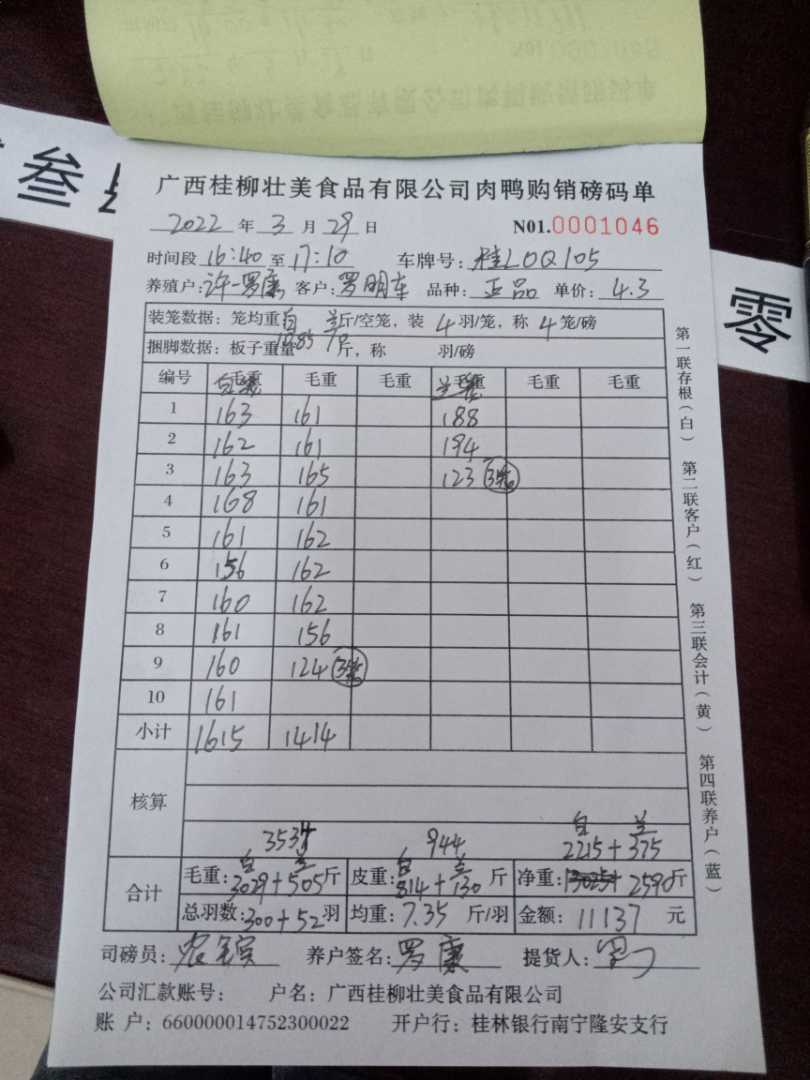 叁
零
广西桂柳壮美食品有限公司肉鸭购销磅码单
2022 年 3 月 29 日 N01.0001046
时间段 16:40 至 17:10 车牌号: 桂L0Q105
养殖户: 许一罗康 客户: 罗明车 品种: 正品 单价: 4.3
装笼数据: 笼均重 白 兰 斤/空笼, 装 4 羽/笼, 称 4 笼/磅
捆脚数据: 板子重量 10.85 10 斤, 称 羽/磅
编号 毛重 毛重 毛重 毛重 毛重 毛重
白笼 兰笼
1 163 161 188
2 162 161 194
3 163 165 123 3笼
4 168 161
5 161 162
6 156 162
7 160 162
8 161 156
9 160 124 3笼
10 161
小计 1615 1414
核算
3534 944 白 兰
2215+375
合计 毛重: 白 兰 3029+505 斤 皮重: 白 兰 814+130 斤 净重: 2590 斤
总羽数: 300+52 羽 均重: 7.35 斤/羽 金额: 11137 元
司磅员: 养户签名: 罗康 提货人:
公司汇款账号: 户名: 广西桂柳壮美食品有限公司
账 户: 660000014752300022 开户行: 桂林银行南宁隆安支行
第一联存根(白) 第二联客户(红) 第三联会计(黄) 第四联养户(蓝)